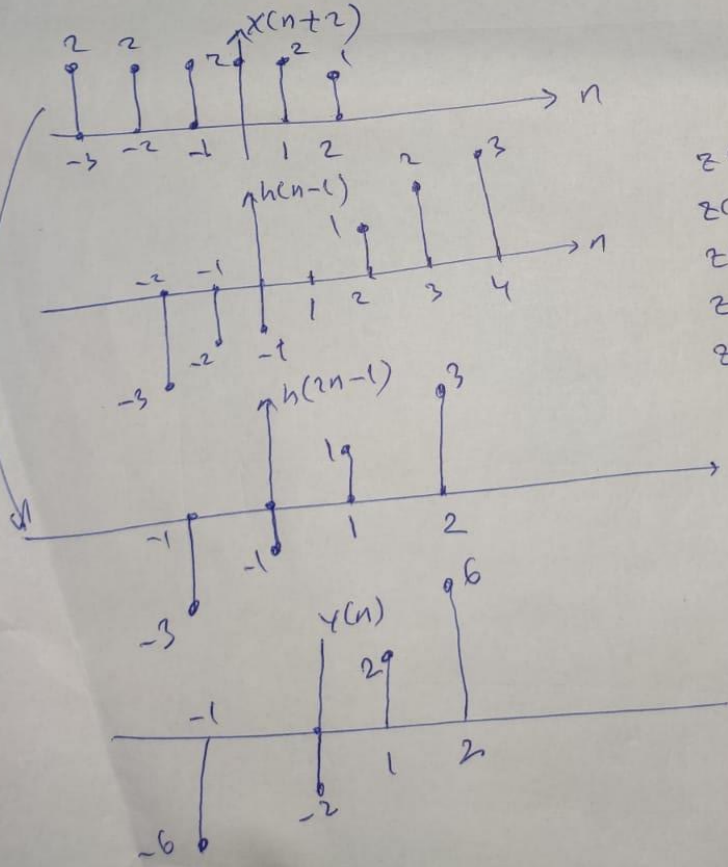 x(n+2)
2 2 2 2 1
n
-3 -2 -1 1 2
h(n-1)
1 2 3
n
-2 -1 1 2 3 4
-3 -2 -1
h(2n-1)
1 3
-1 1 2
-3 -1
y(n)
2 6
-1 1 2
-6 -2
z
z(
z
z
z